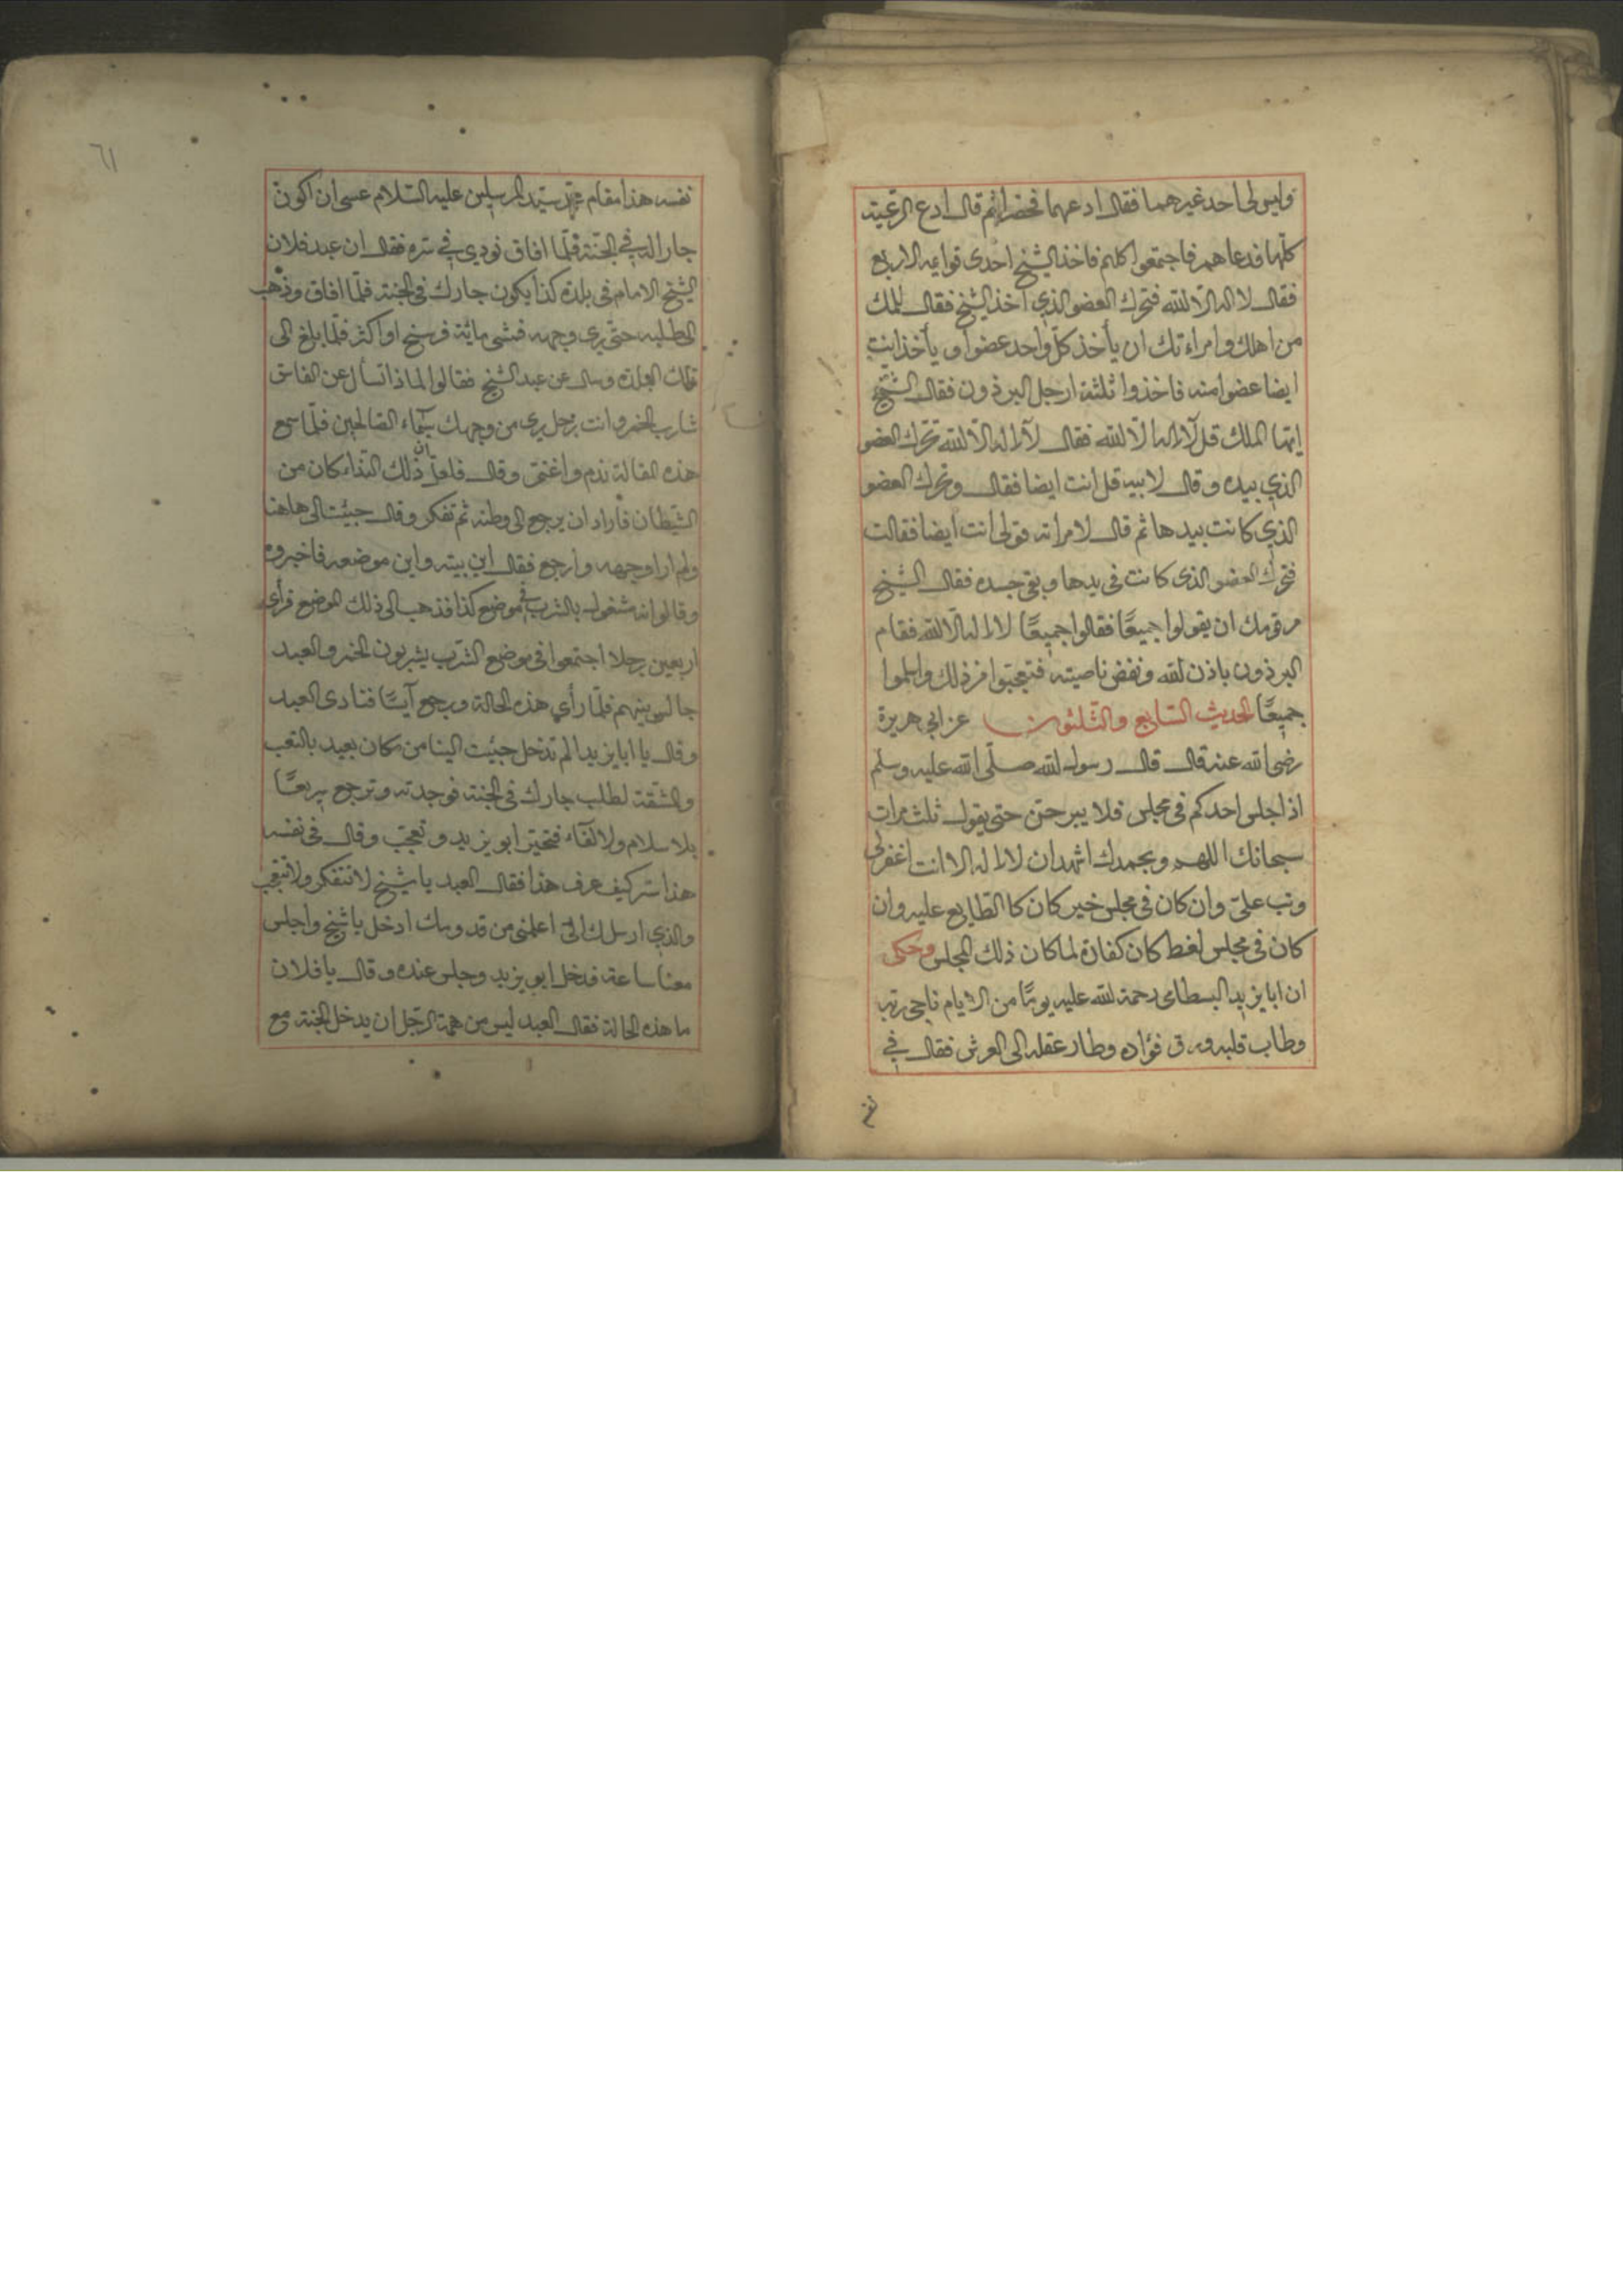 وليس لى احد غيرهما فقال ادعهما فحضرا ثم قال ادع الرعية
كلها فدعاهم فاجتمعوا كلهم فاخذ الشيخ احدى قوايمه الاربع
فقال لا اله الا الله فتحرك العضو الذي اخذ الشيخ فقال للملك
من اهلك وامراءتك ان يأخذ كل واحد عضوا ويأخذ ابنت
ايضا عضوا منه فاخذوا ثلثة ارجل البرذون فقال الشيخ
ايها الملك قل لا اله الا الله فقال لا اله الا الله تحرك العضو
الذي بيده وقال لابيه قل انت ايضا فقال وتحرك العضو
الذي كانت بيدها ثم قال لامراته قولى انت ايضا فقالت
فتحرك العضو الذى كانت فى يدها وبقى جسده فقال الشيخ
مر قومك ان يقولوا جميعًا فقالوا جميعًا لا اله الا الله فقام
البرذون باذن الله ونفض ناصيته فتعجبوا من ذلك واسلموا
جميعًا الحديث السابع والثلثون عن ابي هريرة
رضى الله عنه قال قال رسول الله صلى الله عليه وسلم
اذا جلس احدكم فى مجلس فلا يبرحن حتى يقول ثلث مرات
سبحانك اللهم وبحمدك اشهد ان لا اله الا انت اغفر لى
وتب علىّ وان كان فى مجلس خير كان كالطابع عليه وان
كان فى مجلس لغط كان كفارة لما كان ذلك المجلس وحكى
ان ابا يزيد البسطامى رحمة الله عليه يومًا من الايام ناجى ربه
وطاب قلبه ورق فؤاده وطار عقله الى العرش فقال في
نفسه هذا مقام محمد سيد المرسلين عليه السلام عسى ان اكون
جارا له في الجنة فلمّا افاق نودي في سره فقال ان عبد فلان
الشيخ الامام فى بلدة كذا يكون جارك فى الجنة فلمّا افاق وذهب
الى طلبه حتى يرى وجهه فمشى ماية فرسخ او اكثر فلمّا بلغ الى
تلك البلدة وسال عن عبد الشيخ فقالوا لماذا تسأل عن الفاسق
شارب الخمر وانت رجل يرى من وجهك سيماء الصالحين فلمّا سمع
هذه المقالة ندم واغتم وقال فلعل ان ذلك النداء كان من
الشيطان فاراد ان يرجع الى وطنه ثم تفكر وقال جيئت الى هاهنا
ولم ارا وجهه وارجع فقال اين بيته واين موضعه فاخبروه
وقالوا انه مشغول بالشرب في موضع كذا فذهب الى ذلك الموضع فرأى
اربعين رجلا اجتمعوا فى موضع الشرب يشربون الخمر والعبد
جالس بينهم فلمّا رأي هذه الحالة ورجع آيسًا فنادى العبد
وقال يا ابا يزيد لم لم تدخل جيئت الينا من مكان بعيد بالتعب
والمشقة لطلب جارك فى الجنة فوجدته وترجع سريعًا
بلا سلام ولا لقآء فتحير ابو يزيد وتعجب وقال فى نفسه
هذا سر كيف عرف هذا فقال العبد يا شيخ لا تتفكر ولا تتعجب
والذي ارسلك الىّ اعلمنى من قدومك ادخل يا شيخ واجلس
معنا ساعة فدخل ابو يزيد وجلس عنده وقال يا فلان
ما هذه الحالة فقال العبد ليس من همة الرجل ان يدخل الجنة مع